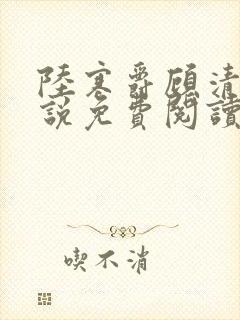 陸寒爵顧清
說免費閱讀
喫不消